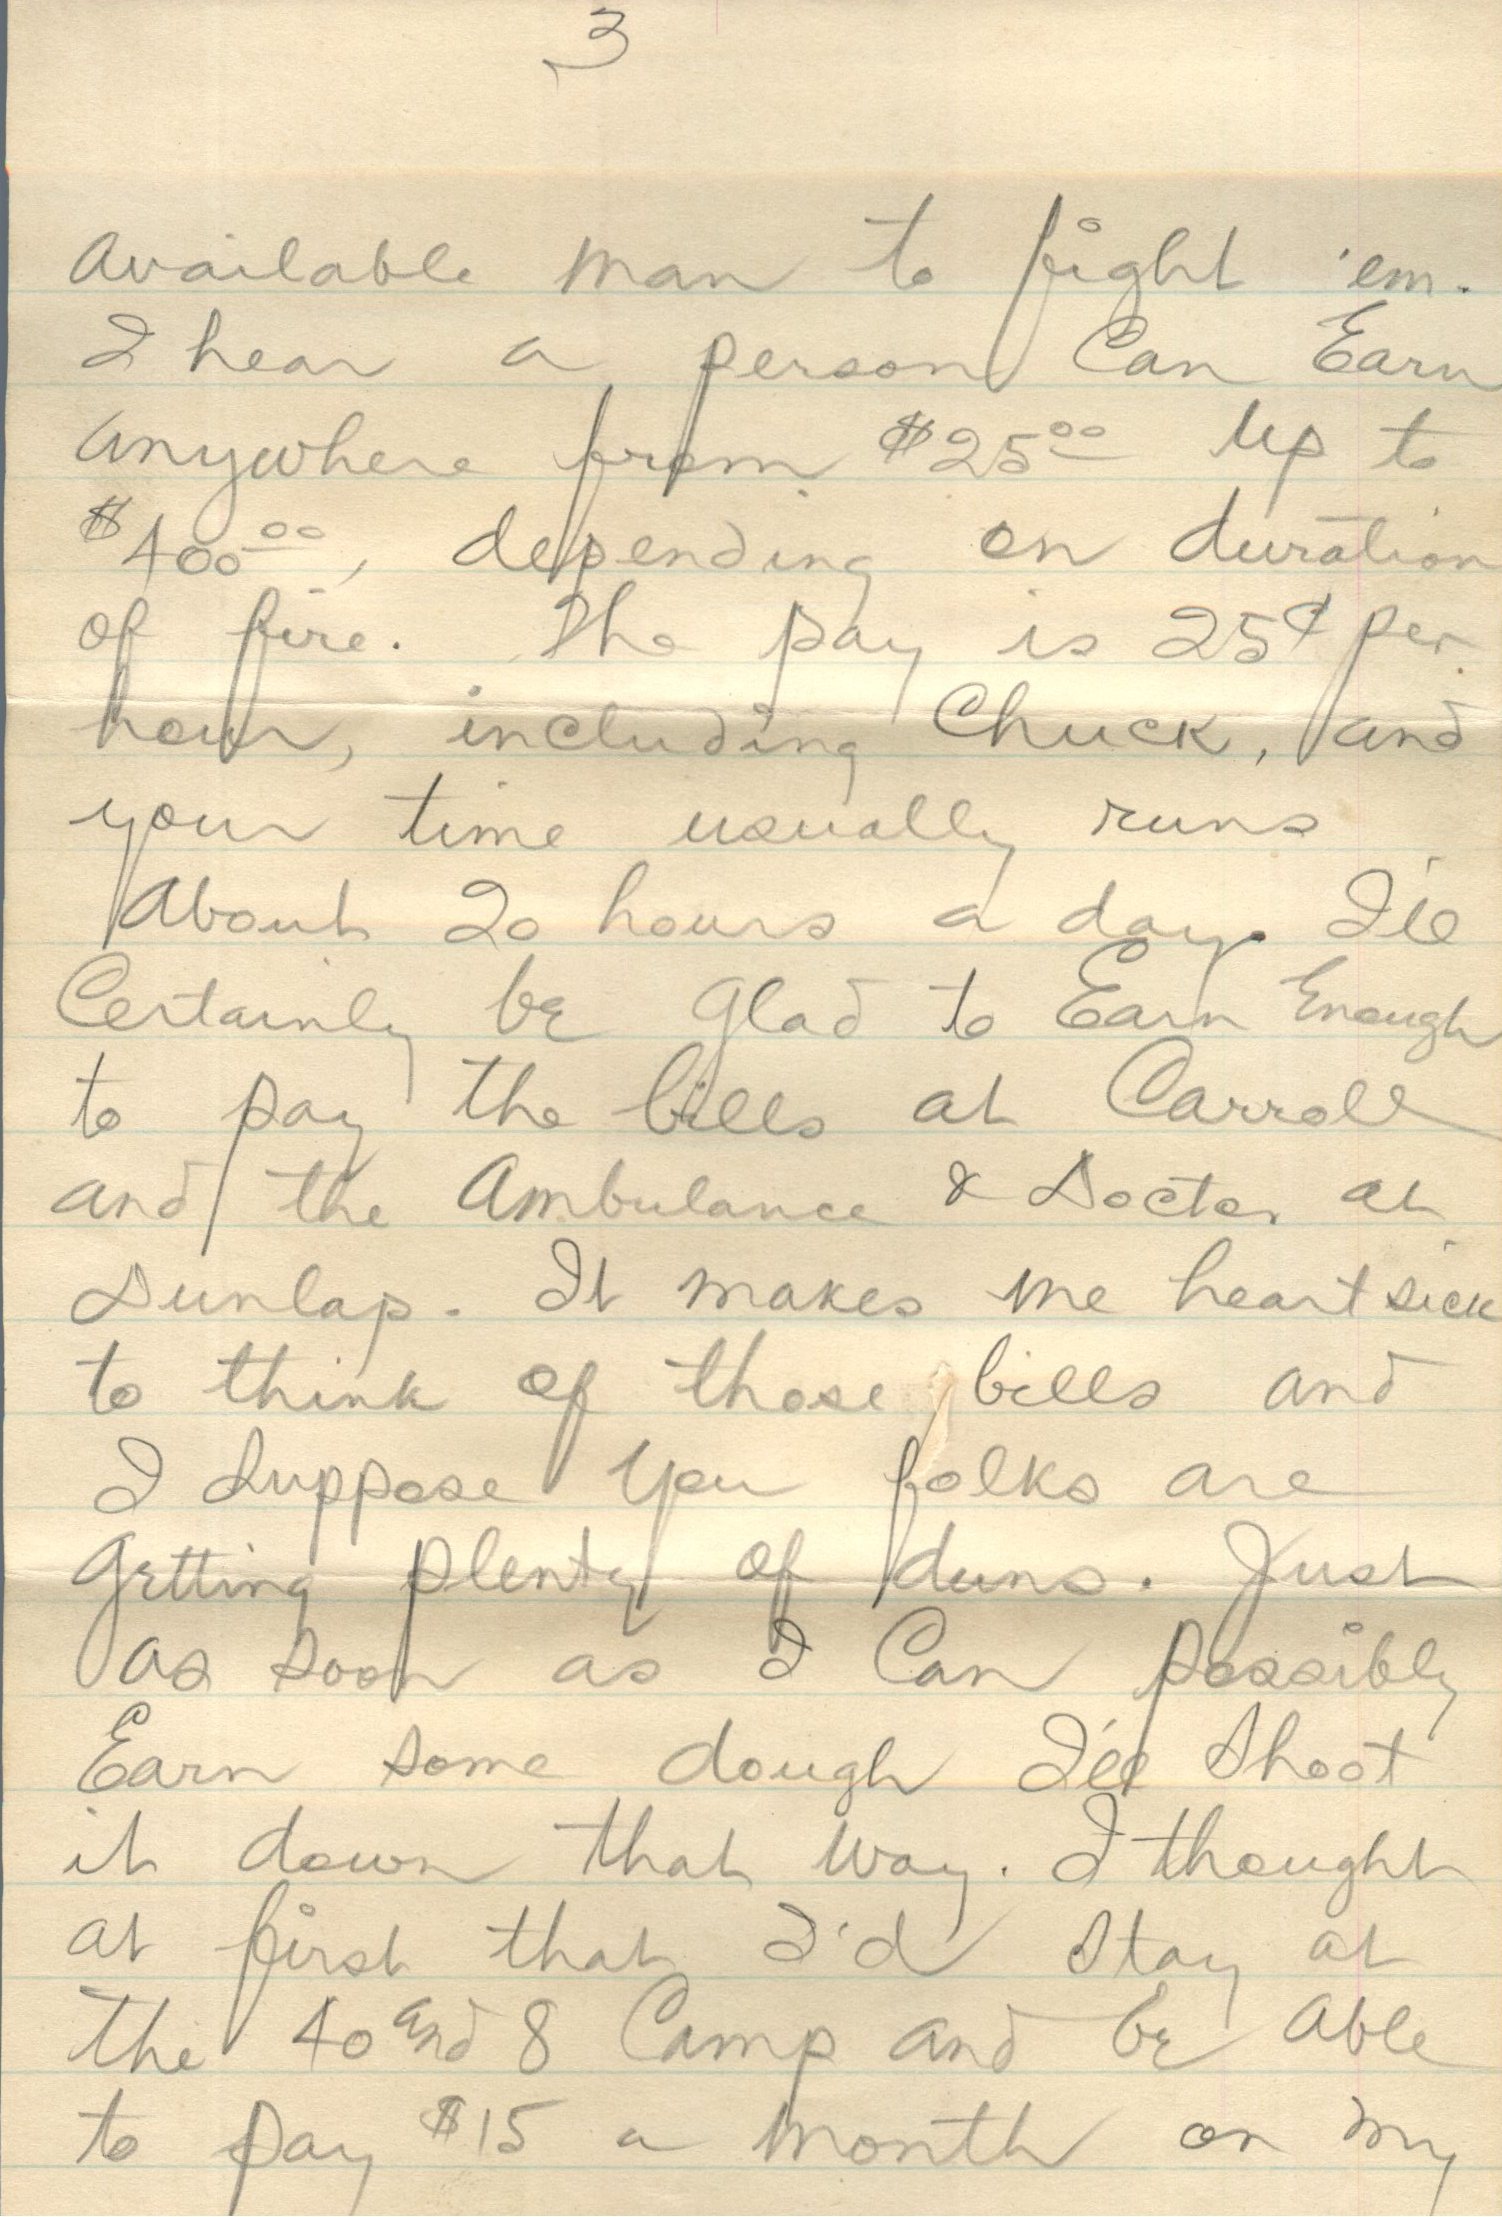 3
Available man to fight 'em.
I hear a person Can Earn
anywhere from $25.00 Up to
$400.00, depending on duration
of fire. The pay is 25¢ per
hour, including Chuck, and
your time usually runs
About 20 hours a day. I'll
Certainly be glad to Earn Enough
to pay the bills at Carroll
and the Ambulance & Doctor at
Dunlap. It makes me heart sick
to think of those bills and
I Suppose you folks are
getting plenty of duns. Just
as soon as I Can possibly
Earn some dough I'll Shoot
it down that way. I thought
at first that I'd Stay at
the 40 and 8 Camp and be Able
to pay $15 a month on my